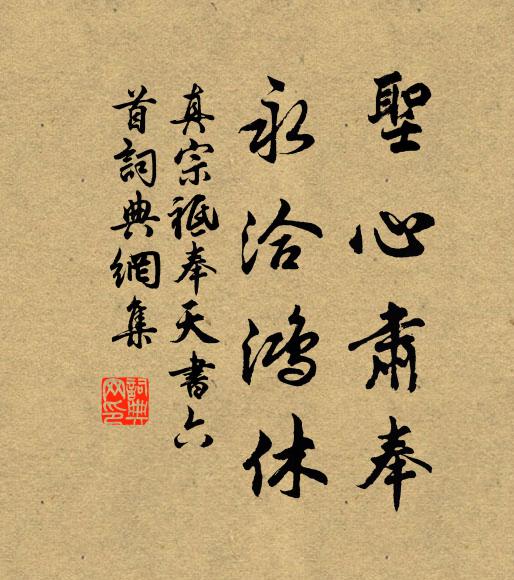 聖心肅奉
永洽鴻休
真宗祗奉天書六
首詞典網集
詞典
网印